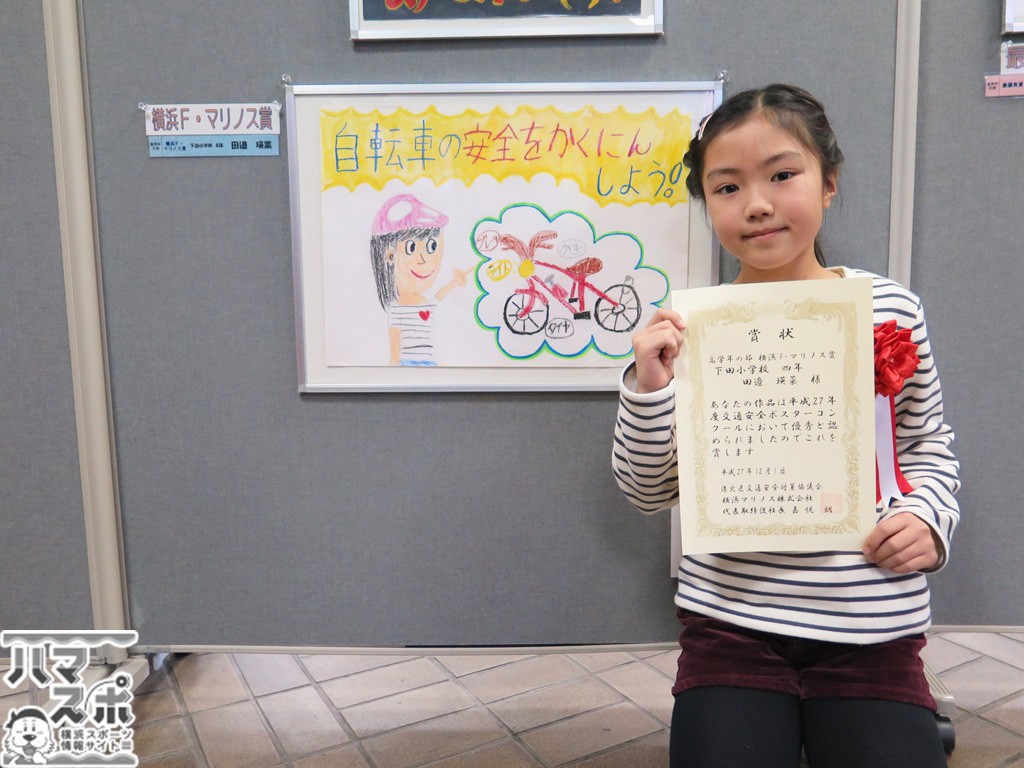 横浜F・マリノス賞
横浜F・マリノス賞
下田小学校 4年
田邉 瑛菜
自転車の安全をかくにん
しよう!
ブレーキ
ライト
タイヤ
賞状
高学年の部 横浜F・マリノス賞
下田小学校 四年
田邉 瑛菜 様
あなたの作品は平成27年
度交通安全ポスターコン
クールにおいて優秀と認
められましたのでこれを
賞します
平成27年12月1日
港北区交通安全対策協議会
横浜マリノス株式会社
代表取締役社長 嘉悦 朗
ハマ
スポ
横浜スポーツ
情報サイト